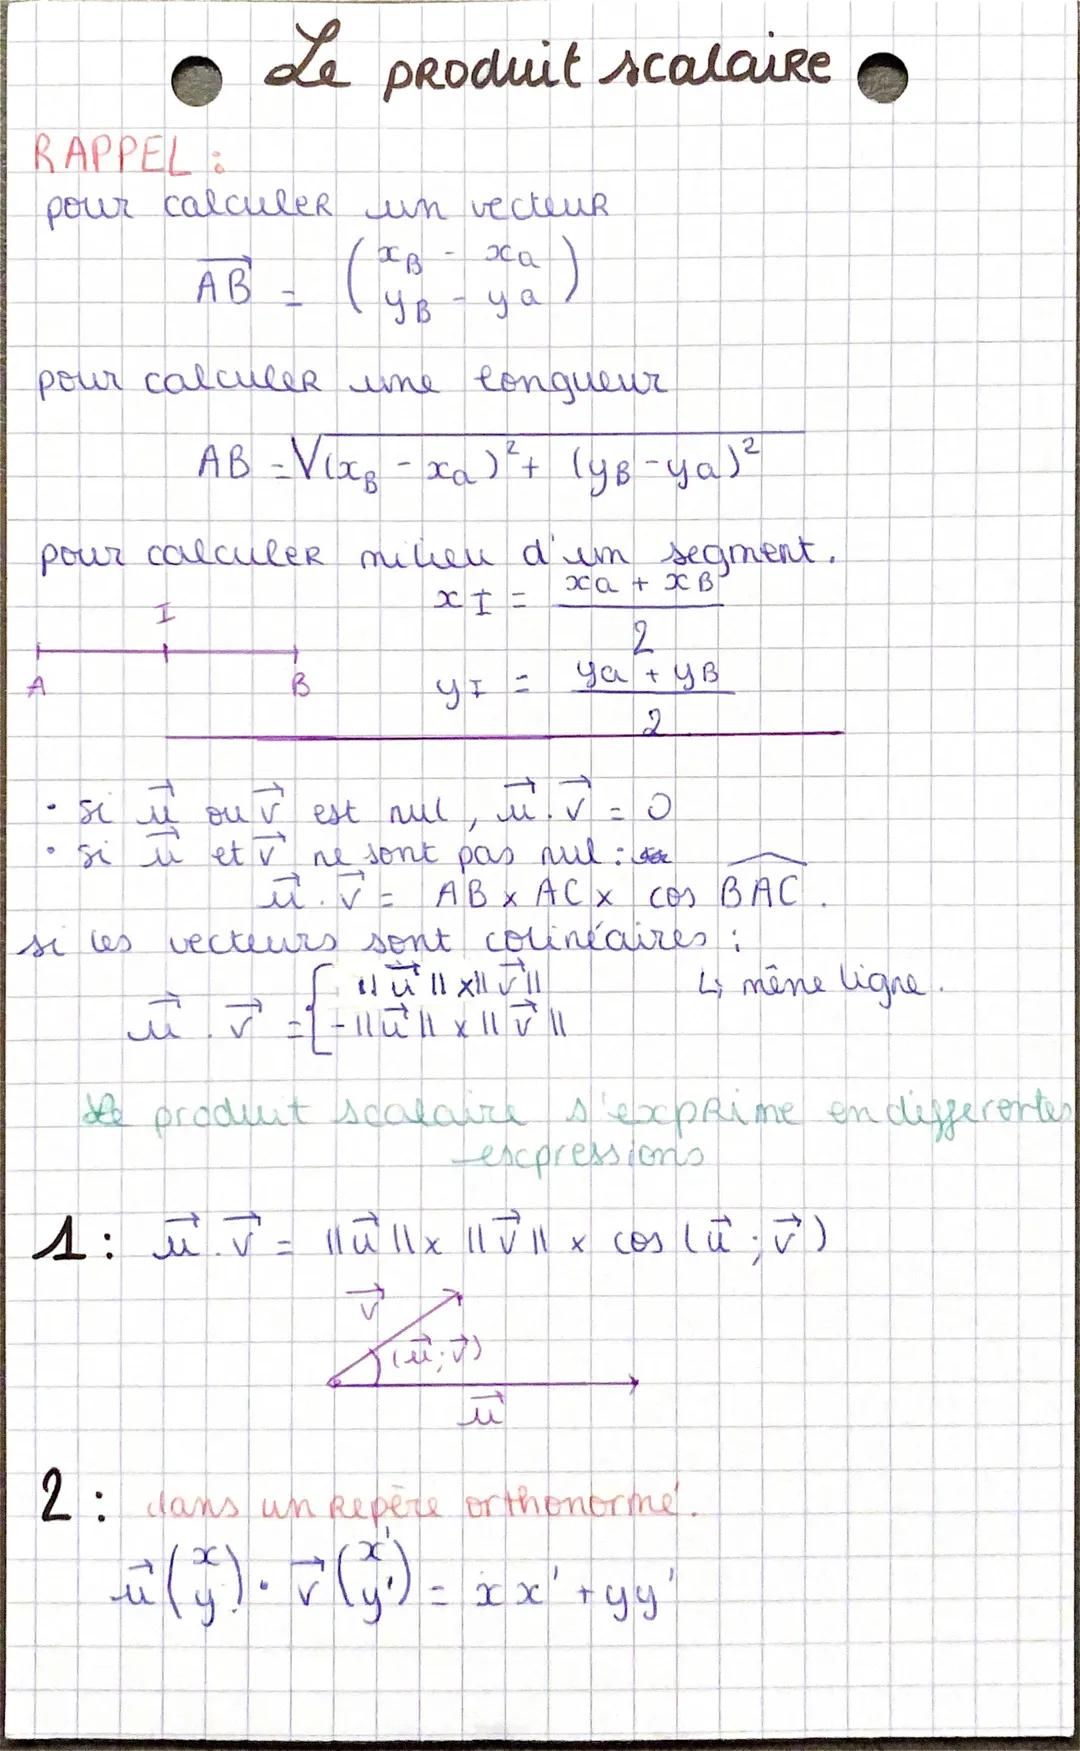 Le produit scalaire
RAPPEL :
pour calculer un vecteur
$\overrightarrow{AB} = \begin{pmatrix} x_B - x_a \\ y_B - y_a \end{pmatrix}$
pour calculer une longueur
$AB = \sqrt{(x_B - x_a)^2 + (y_B - y_a)^2}$
pour calculer milieu d'un segment.
$x_I = \frac{x_a + x_B}{2}$
I
A B
$y_I = \frac{y_a + y_B}{2}$
• si $\vec{u}$ ou $\vec{v}$ est nul, $\vec{u} . \vec{v} = 0$
• si $\vec{u}$ et $\vec{v}$ ne sont pas nul :
$\vec{u} . \vec{v} = AB \times AC \times \cos \widehat{BAC}$.
si les vecteurs sont colinéaires :
↳ même ligne.
$\vec{u} . \vec{v} = \begin{cases} ||\vec{u}|| \times ||\vec{v}|| \\ -||\vec{u}|| \times ||\vec{v}|| \end{cases}$
Le produit scalaire s'exprime en differentes
expressions
1 : $\vec{u} . \vec{v} = ||\vec{u}|| \times ||\vec{v}|| \times \cos (\vec{u} ; \vec{v})$
$\vec{v}$
$(\vec{u} ; \vec{v})$
$\vec{u}$
2 : dans un repère orthonormé.
$\vec{u} \begin{pmatrix} x \\ y \end{pmatrix} \cdot \vec{v} \begin{pmatrix} x' \\ y' \end{pmatrix} = xx' + yy'$